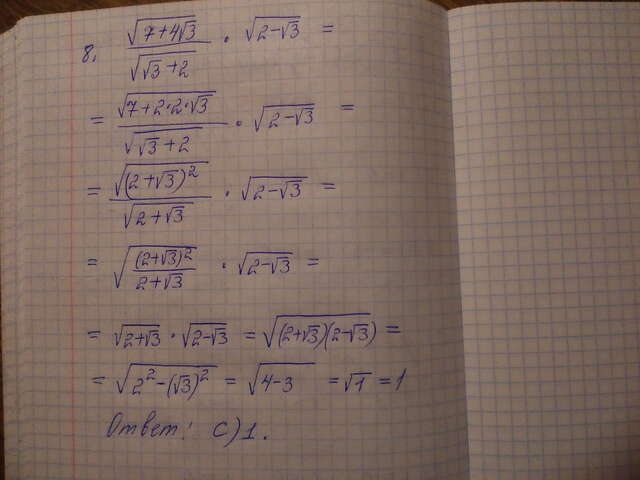 8. √(7+4√3) / √(√3+2) · √(2-√3) =
= √(7+2·2·√3) / √(√3+2) · √(2-√3) =
= √((2+√3)²) / √(2+√3) · √(2-√3) =
= √((2+√3)² / (2+√3)) · √(2-√3) =
= √(2+√3) · √(2-√3) = √((2+√3)(2-√3)) =
= √(2²-(√3)²) = √(4-3) = √1 = 1
Ответ: С) 1.